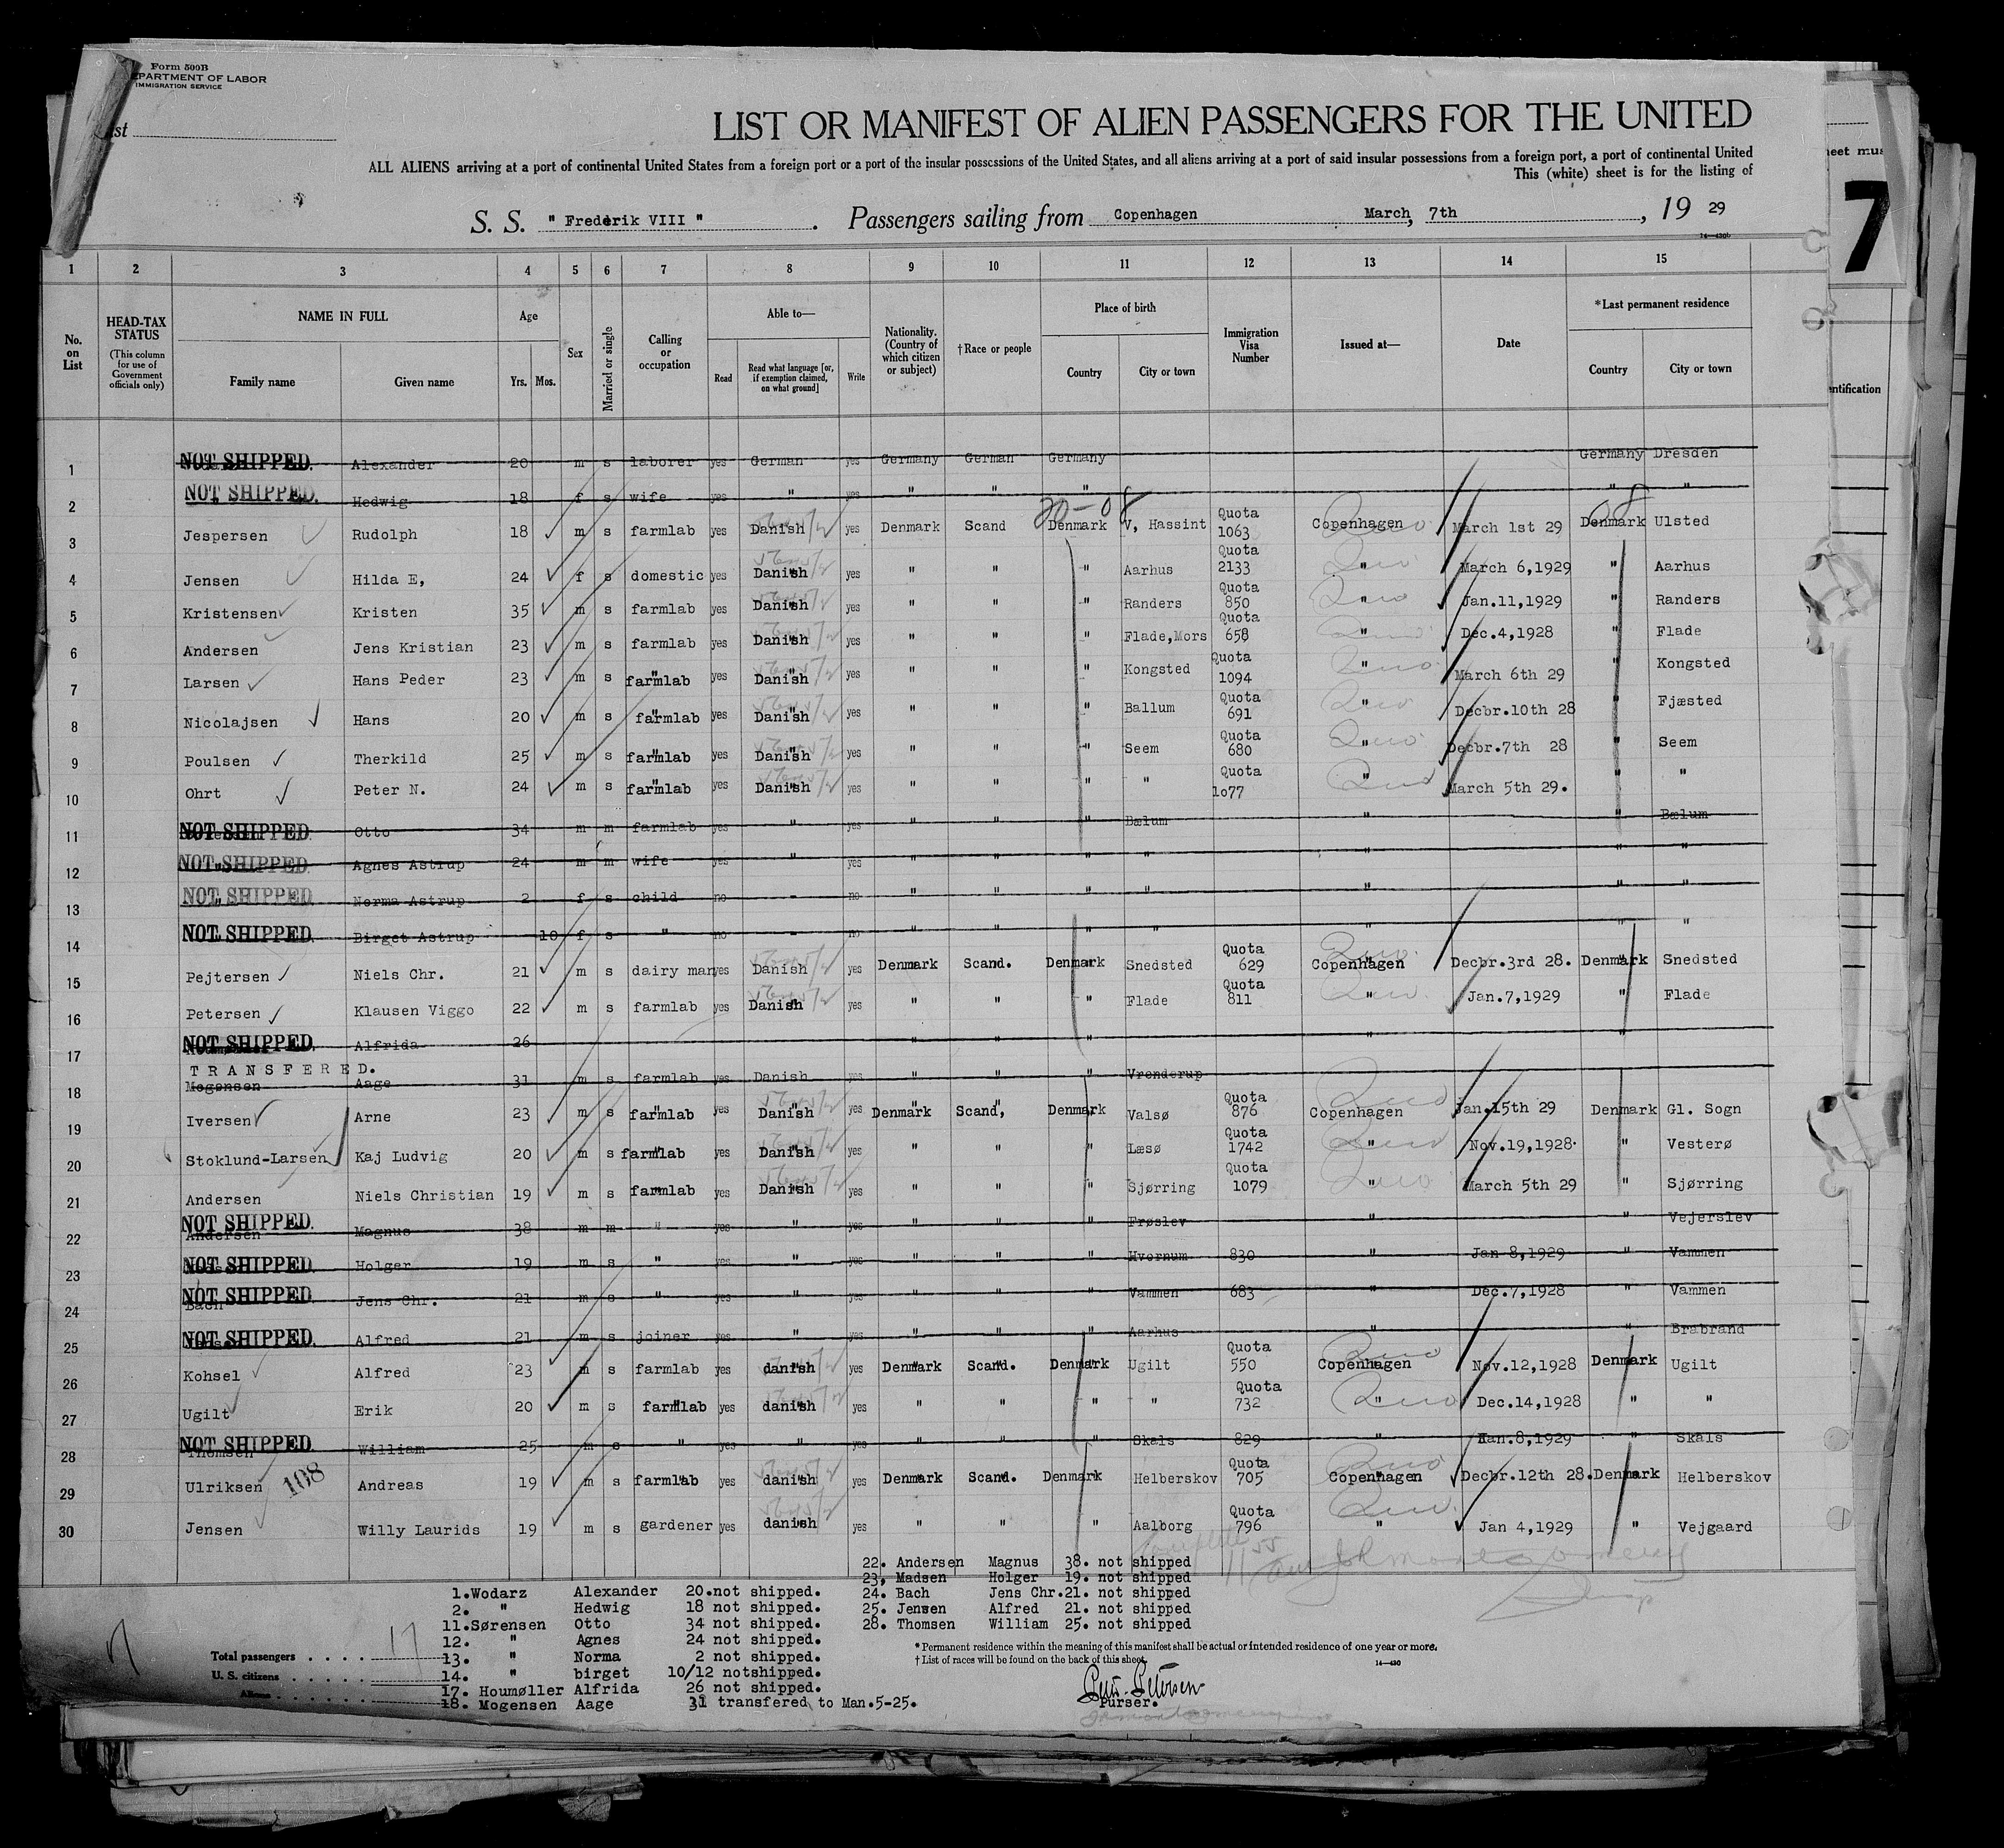 Form 500B
DEPARTMENT OF LABOR
IMMIGRATION SERVICE
LIST OR MANIFEST OF ALIEN PASSENGERS FOR THE UNITED
ALL ALIENS arriving at a port of continental United States from a foreign port or a port of the insular possessions of the United States, and all aliens arriving at a port of said insular possessions from a foreign port, a port of continental United
This (white) sheet is for the listing of
S. S. " Frederik VIII " . Passengers sailing from Copenhagen March, 7th , 19 29
14—430b
7
1 2 3 4 5 6 7 8 9 10 11 12 13 14 15
No. on List
HEAD-TAX STATUS (This column for use of Government officials only)
NAME IN FULL Family name Given name
Age Yrs. Mos.
Sex
Married or single
Calling or occupation
Able to— Read Read what language [or, if exemption claimed, on what ground] Write
Nationality. (Country of which citizen or subject)
†Race or people
Place of birth Country City or town
Immigration Visa Number
Issued at—
Date
*Last permanent residence Country City or town
1 NOT SHIPPED. Alexander 20 m s laborer yes German yes Germany German Germany Germany Dresden
2 NOT SHIPPED. Hedwig 18 f s wife yes " yes " " " " "
20-08 08
3 Jespersen Rudolph 18 m s farmlab yes Danish yes Denmark Scand Denmark V, Hassint Quota 1063 Copenhagen March 1st 29 Denmark Ulsted
4 Jensen Hilda E, 24 f s domestic yes Danish yes " " " Aarhus Quota 2133 " March 6,1929 " Aarhus
5 Kristensen Kristen 35 m s farmlab yes Danish yes " " " Randers Quota 850 " Jan.11,1929 " Randers
6 Andersen Jens Kristian 23 m s farmlab yes Danish yes " " " Flade,Mors Quota 658 " Dec.4,1928 " Flade
7 Larsen Hans Peder 23 m s farmlab yes Danish yes " " " Kongsted Quota 1094 " March 6th 29 " Kongsted
8 Nicolajsen Hans 20 m s farmlab yes Danish yes " " " Ballum Quota 691 " Decbr.10th 28 " Fjæsted
9 Poulsen Therkild 25 m s farmlab yes Danish yes " " " Seem Quota 680 " Decbr.7th 28 " Seem
10 Ohrt Peter N. 24 m s farmlab yes Danish yes " " " " Quota 1o77 " March 5th 29. " "
11 NOT SHIPPED Otto 34 m m farmlab yes " yes " " " Bælum " " Bælum
12 NOT SHIPPED Agnes Astrup 24 m m wife yes " yes " " " " " " "
13 NOT SHIPPED Norma Astrup 2 f s child no - no " " " " " " "
14 NOT SHIPPED. Birget Astrup 10 f s " no - no " " " " " " "
15 Pejtersen Niels Chr. 21 m s dairy man yes Danish yes Denmark Scand. Denmark Snedsted Quota 629 Copenhagen Decbr.3rd 28. Denmark Snedsted
16 Petersen Klausen Viggo 22 m s farmlab yes Danish yes " " " Flade Quota 811 " Jan.7,1929 " Flade
17 NOT SHIPPED. Alfrida 26 " " " " "
TRANSFERED.
18 Mogensen Aage 31 m s farmlab yes Danish yes " " " Vrenderup
19 Iversen Arne 23 m s farmlab yes Danish yes Denmark Scand, Denmark Valsø Quota 876 Copenhagen Jan.15th 29 Denmark Gl. Sogn
20 Stoklund-Larsen Kaj Ludvig 20 m s farmlab yes Danish yes " " " Læsø Quota 1742 " Nov.19,1928. " Vesterø
21 Andersen Niels Christian 19 m s farmlab yes Danish yes " " " Sjørring Quota 1079 " March 5th 29 " Sjørring
22 NOT SHIPPED. Andersen Magnus 38 m m " yes " yes " " " Frøslev " " Vejerslev
23 NOT SHIPPED. Holger 19 m s " yes " yes " " " Hvornum 830 " Jan 8,1929 " Vammen
24 NOT SHIPPED. Bach Jens Chr. 21 m s " yes " yes " " " Vammen 683 " Dec.7,1928 " Vammen
25 NOT SHIPPED. Alfred 21 m s joiner yes " yes " " " Aarhus " " Brabrand
26 Kohsel Alfred 23 m s farmlab yes danish yes Denmark Scand. Denmark Ugilt Quota 550 Copenhagen Nov.12,1928 Denmark Ugilt
27 Ugilt Erik 20 m s farmlab yes danish yes " " " " Quota 732 " Dec.14,1928 " "
28 NOT SHIPPED. Thomsen William 25 m s " yes " yes " " " Skals 829 " Jan.8,1929 " Skals
29 Ulriksen 108 Andreas 19 m s farmlab yes danish yes Denmark Scand. Denmark Helberskov Quota 705 Copenhagen Decbr.12th 28. Denmark Helberskov
30 Jensen Willy Laurids 19 m s gardener yes danish yes " " " Aalborg Quota 796 " Jan 4,1929 " Vejgaard
22. Andersen Magnus 38. not shipped
23, Madsen Holger 19. not shipped
24. Bach Jens Chr.21. not shipped
25. Jensen Alfred 21. not shipped
28. Thomsen William 25. not shipped
1.Wodarz Alexander 20.not shipped.
2. " Hedwig 18 not shipped.
11.Sørensen Otto 34 not shipped.
12. " Agnes 24 not shipped.
13. " Norma 2 not shipped.
14. " birget 10/12 notshipped.
17. Houmøller Alfrida 26 not shipped.
18. Mogensen Aage 31 transfered to Man.5-25.
Total passengers . . . . 17
U. S. citizens . . . . . .
Aliens . . . . . . .
* Permanent residence within the meaning of this manifest shall be actual or intended residence of one year or more.
† List of races will be found on the back of this sheet.
14—430
Purser.